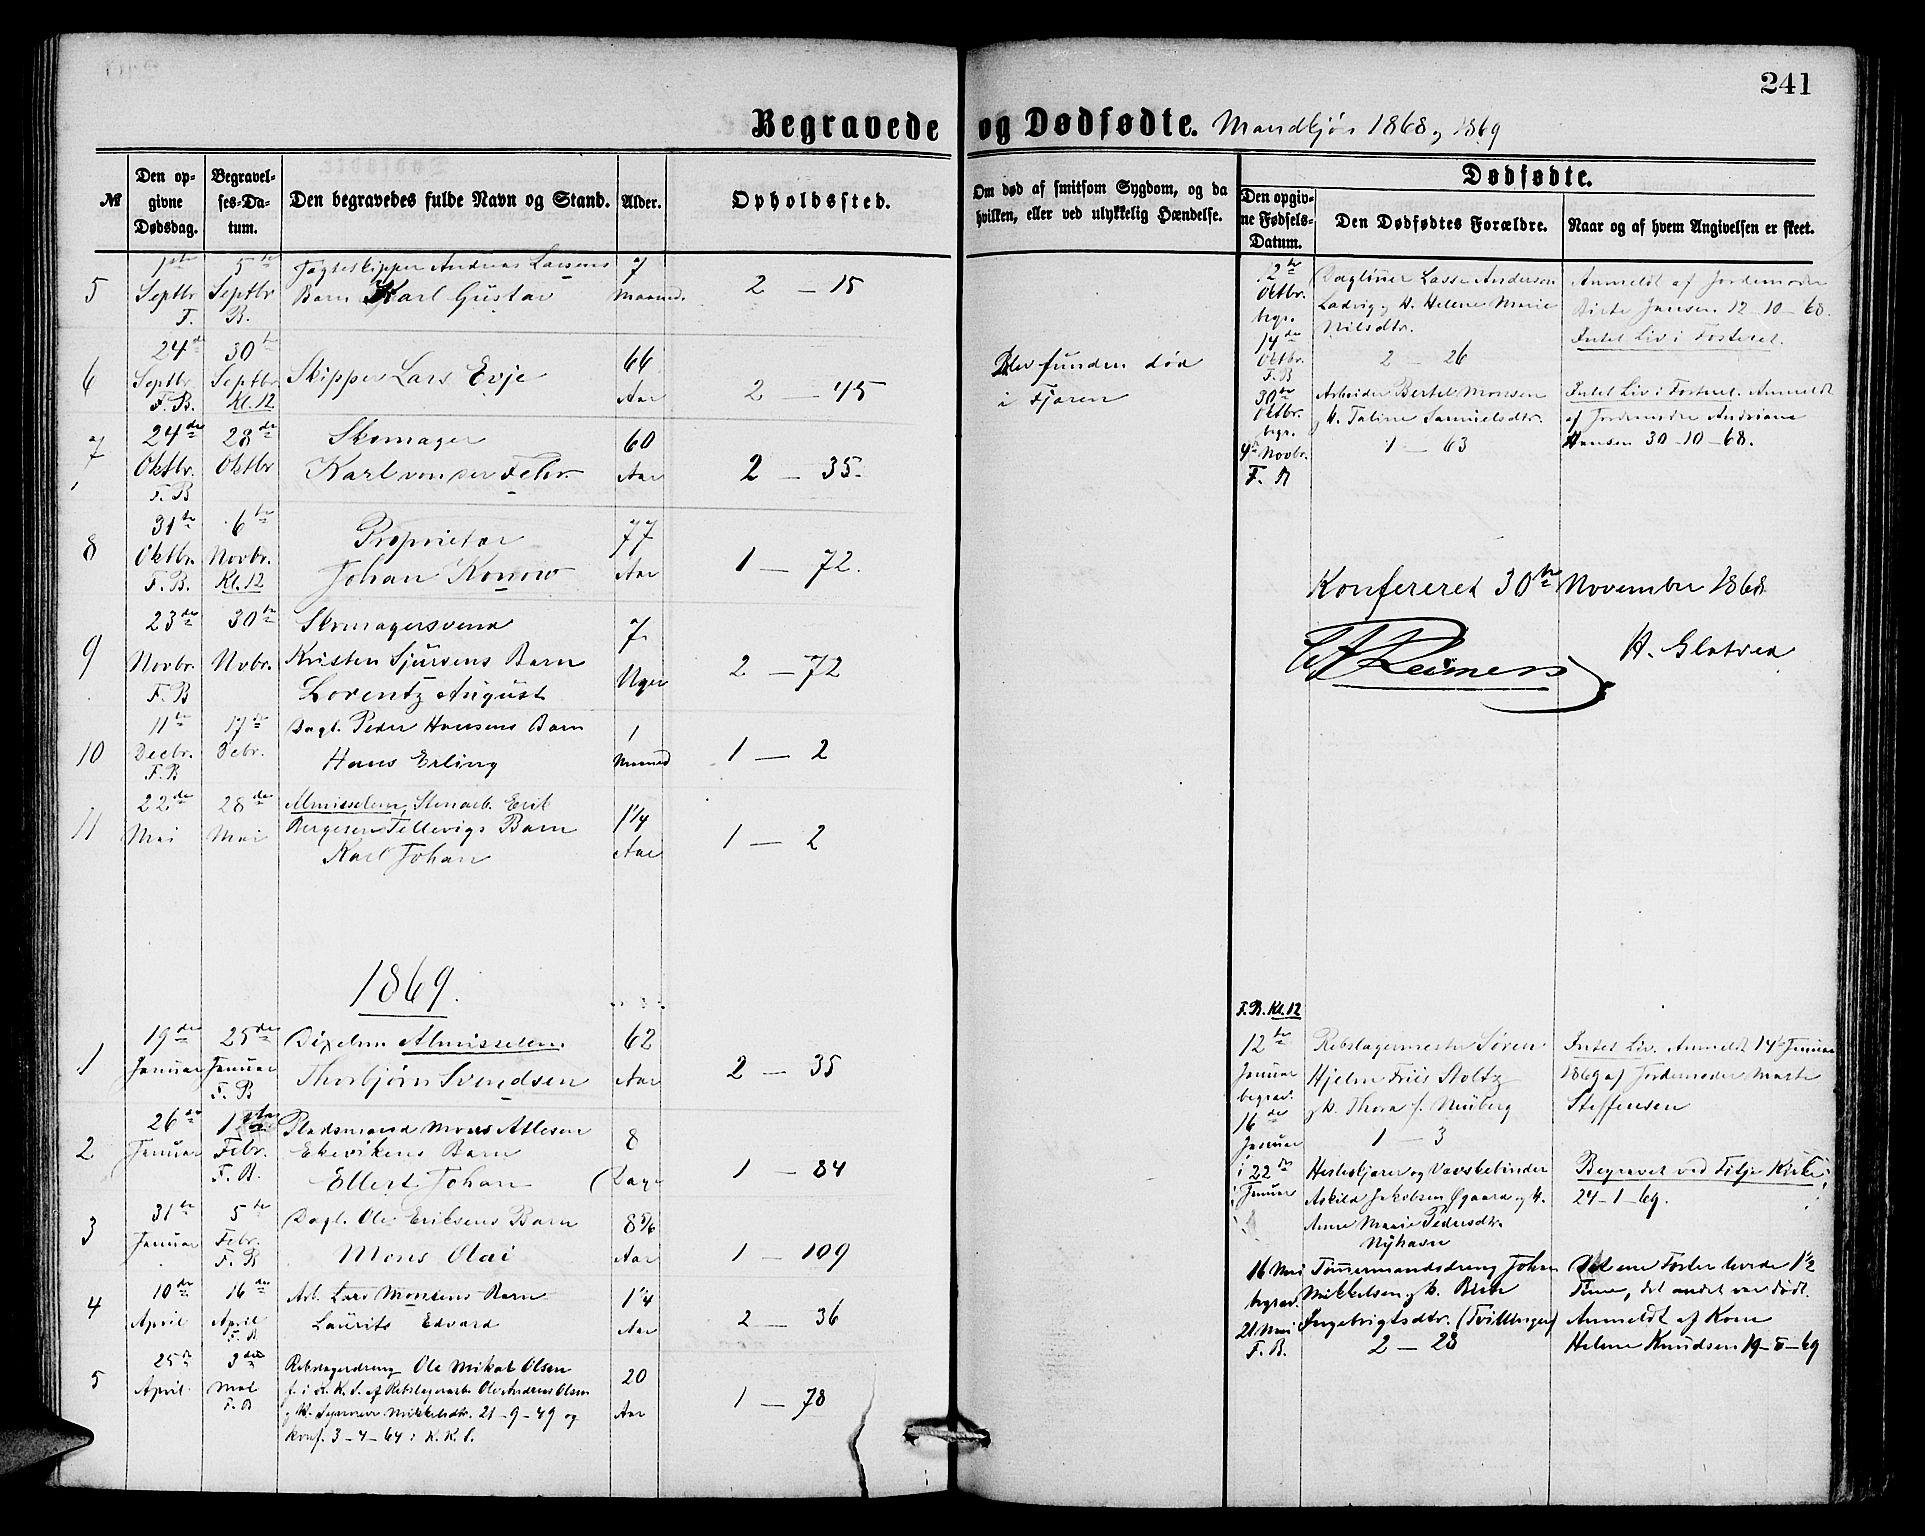 241
Begravede og Dødfødte. Mandkjøn 1868 og 1869
№
Den op-
givne
Dødsdag.
Begravel-
ses-Da-
tum.
Den begravedes fulde Navn og Stand.
Alder.
Opholdssted.
Om død af smitsom Sygdom, og da
hvilken, eller ved ulykkelig Hændelse.
Dødfødte.
Den opgiv-
ne Fødsels-
Datum.
Den Dødfødtes Forældre.
Naar og af hvem Angivelsen er skeet.
5
1ste
Septbr
F.
5te
Septbr
B.
Jagteskipper Andreas Larsens
Barn Karl Gustav
7
Maaned.
2 — 15
6
24de
Septbr.
F. B.
30te
Septbr.
Kl. 12
Skipper Lars Evje
66
Aar
2 — 45
Blev funden død
i Fjøren
7
24de
Oktbr.
F. B
28de
Oktbr
Skomager
Karl von der Fehr.
60
Aar
2 — 35.
8
31te
Oktbr.
F. B.
6te
Novbr.
Kl. 12
Proprietær
Johan Konow
77
Aar
1 — 72.
9
23de
Novbr.
F. B
30te
Nvbr.
Skomagersvend
Kristen Sjursens Barn
Lorentz August
7
Uger
2 — 72
10
11te
Decbr.
F. B
17de
Debr.
Dagl. Peder Hansens Barn
Hans Erling
1
Maaned
1 — 2
11
22de
Mai
28de
Mai
Almisselem, Stenarb. Erik
Bergesen Tellevigs Barn
Karl Johan
1 1/4
Aar
1 — 2
1869.
1
19de
Januar
25de
Januar
F. B
Almisselem
Thorbjørn Svendsen
62
Aar
2 — 35
2
26de
Januar
Febr.
F. B.
Pladsmand Mons Atlesen
Ekevikens Barn
Ellert Johan
8
Dage
1 — 84
3
31te
Januar
5te
Febr.
F. B
Dagl. Ole Eriksens Barn
Mons Olai
8 5/6
Aar
1 — 109
4
10de
April
16de
April
F. B
Arb. Lars Monsens Barn
Laurits Edvard
1 1/4
Aar
2 — 36
5
25de
April
3die
Mai
F. B
Rebslagerdreng Ole Mikal Olsen
f. i D. K. S. af Rebslagerarb. Ole Andreas Olsen
og H. Synneve Mikkelsdtr. 21-9-49 og
konf. 3-4-64 i K. K. S.
20
Aar
1 — 78
2de
Oktbr.
begr.
14de
Oktbr.
F. B
Dagløner Lasse Andersen
Ladvig og H. Helene Marie
Nilsdtr.
2 — 26
Anmeldt af Jordemoder
Birte Jansen 12-10-68.
Intet Liv i Fosteret.
30te
Oktbr.
begr.
4de Novbr.
F. B
Arbeider Bertel Monsen
og H. Taline Samuelsdtr.
1 — 63
Intet Liv i Fosteret. Anmeldt
af Jordemoder Andriane
Hansen 30-10-68.
Konfereret 30te November 1868
Reimers
F. B. Kl. 12
12te
Januar
begrav.
16de
Januar
Rebslagermester Søren
Hjelm Friis Stoltz
og H. Thora f. Meüberg
1 — 3
Intet Liv. Anmeldt 14de Januar
1869 af Jordemoder Marte
Steffensen
22de
Januar
Hesteskjærer og Vævskebinder
Askild Jakobsen Øgaard og H.
Anne Marie Pedersdtr.
Nyhavn
Begravet ved Fitje Kirke
24-1-69.
16 Mai
begrav.
21 Mai
F. B.
Tømmermandsdreng Johan
Mikkelsen og H. Berte
Ingebrigtsdtr. (Tvillinger)
2 — 28
Det ene Foster levede 1 1/2
Time, det andet var dødt.
Anmeldt af Kone
Helene Knudsen 19-5-69